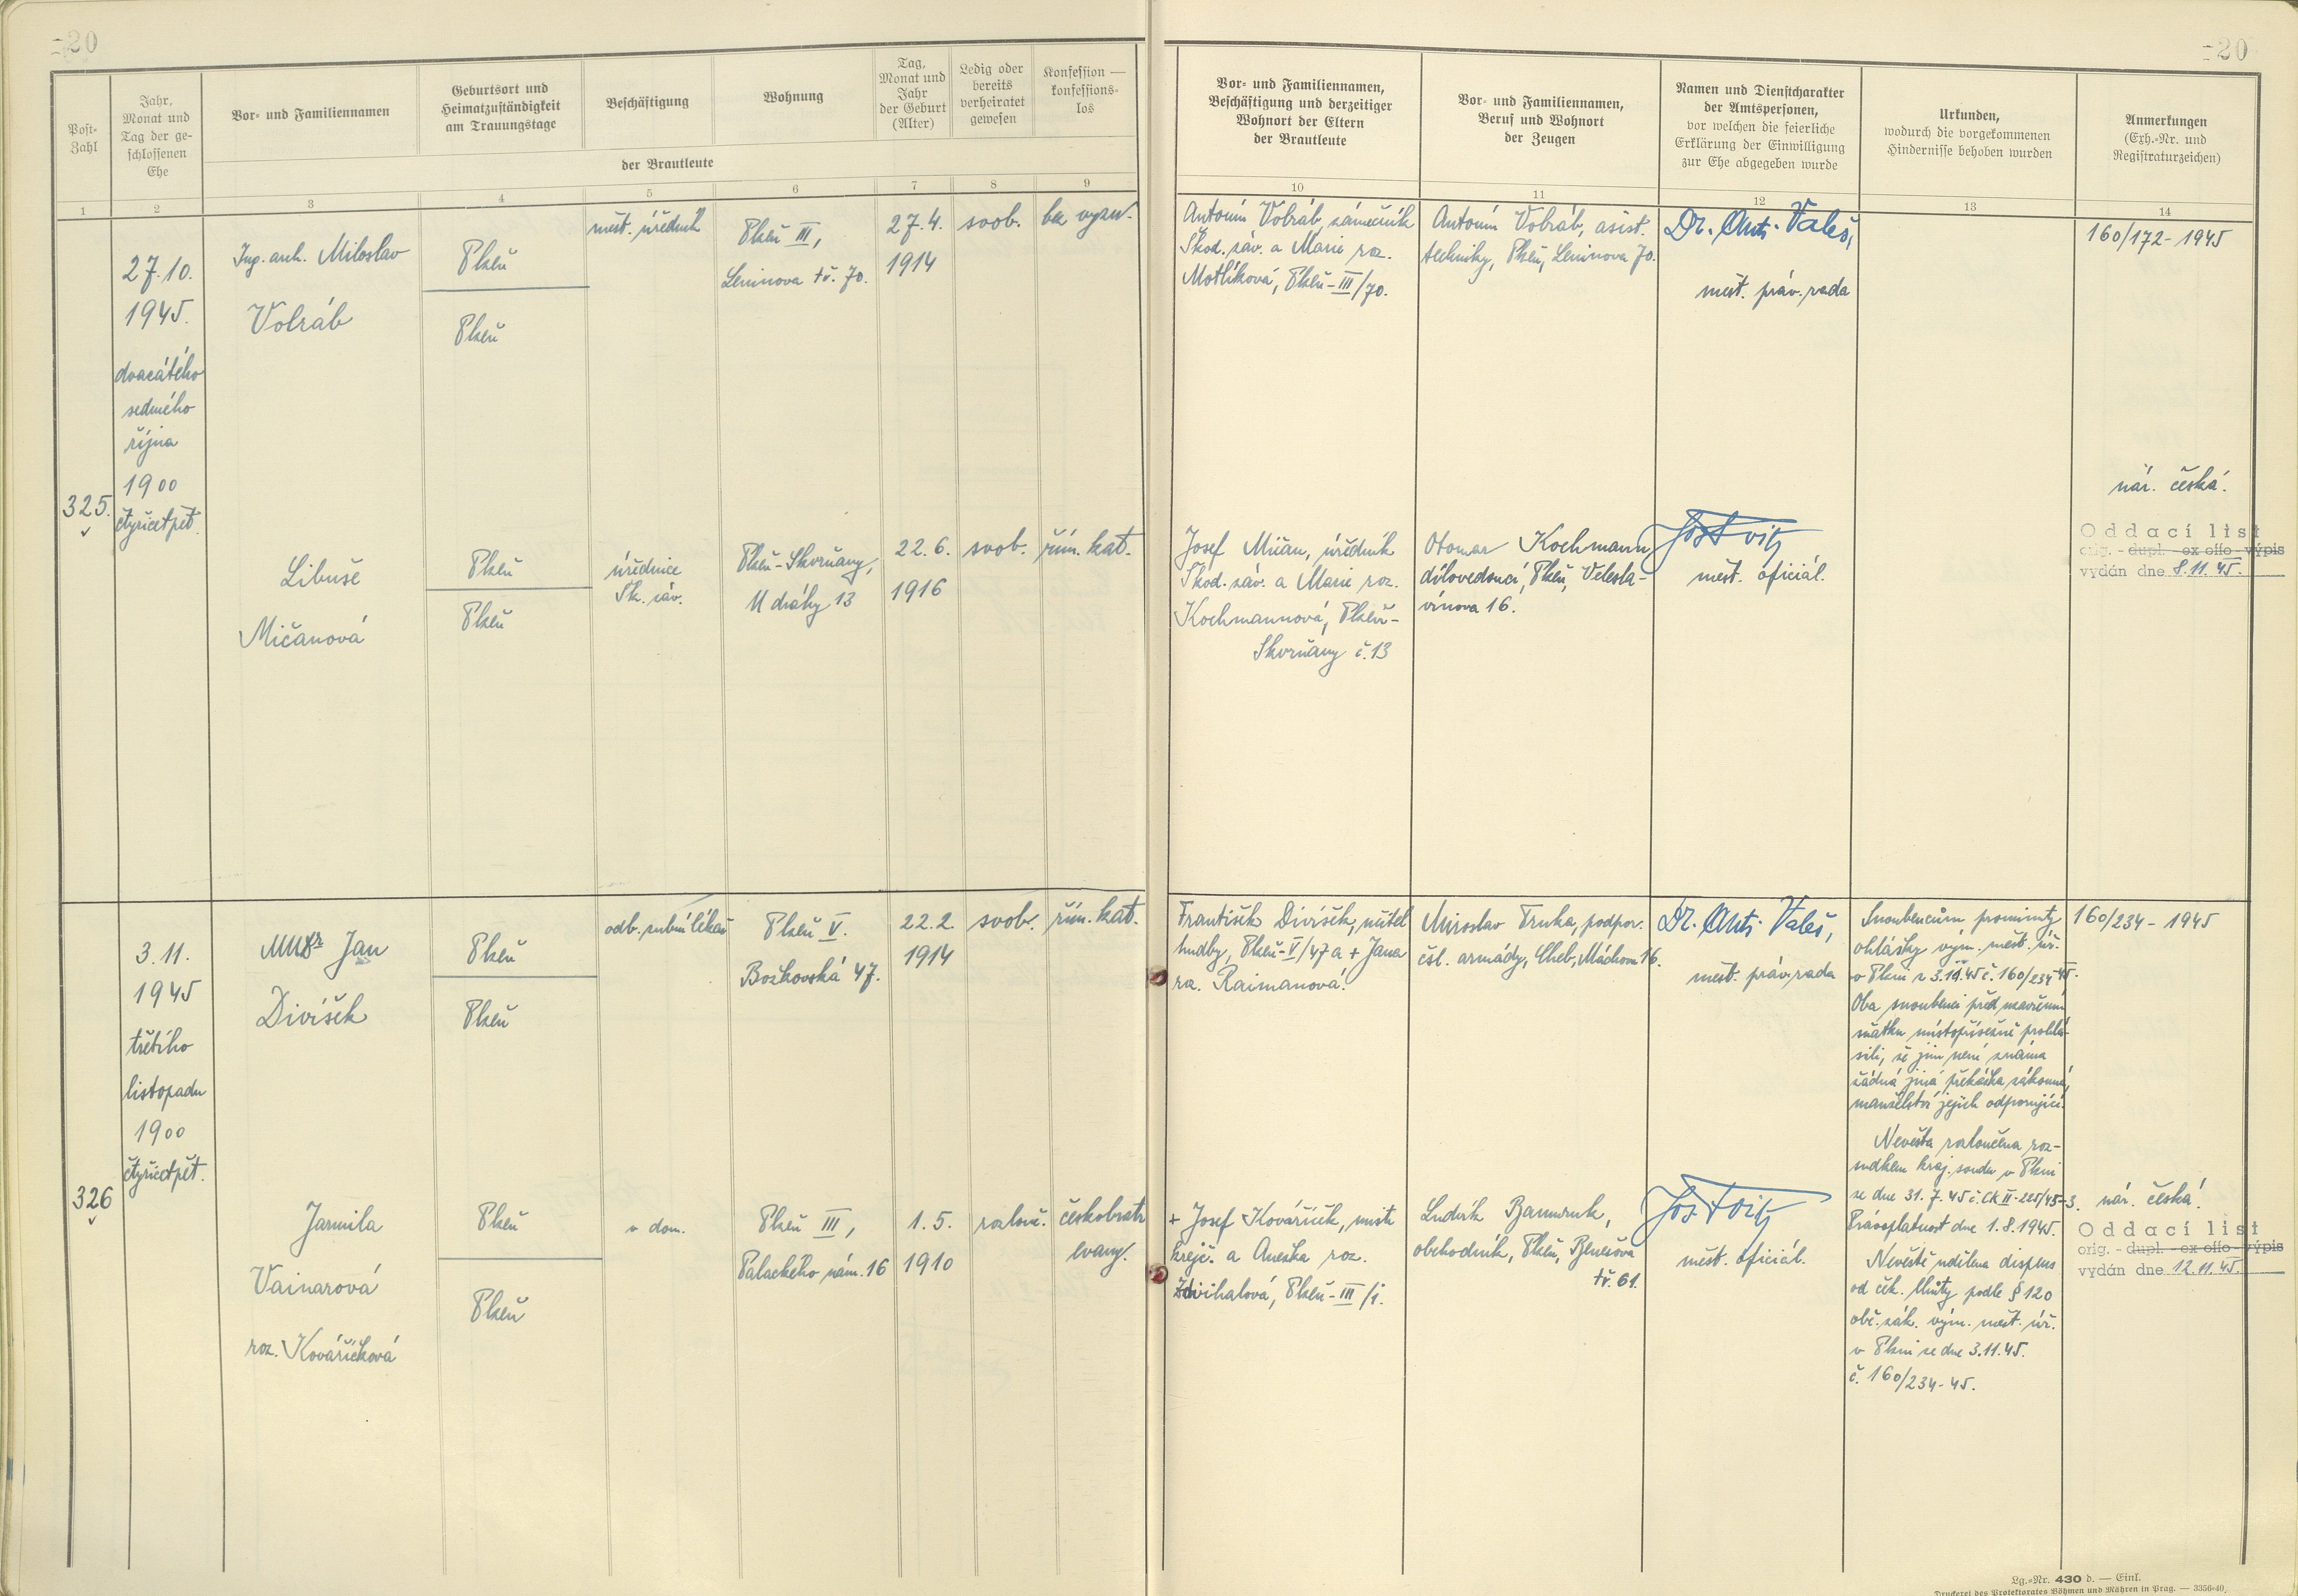 -20
-20
Post-
Zahl
Jahr,
Monat und
Tag der ge-
schlossenen
Ehe
Vor- und Familiennamen
Geburtsort und
Heimatzuständigkeit
am Trauungstage
Beschäftigung
Wohnung
Tag,
Monat und
Jahr
der Geburt
(Alter)
Ledig oder
bereits
verheiratet
gewesen
Konfession —
konfessions-
los
der Brautleute
Vor- und Familiennamen,
Beschäftigung und derzeitiger
Wohnort der Eltern
der Brautleute
Vor- und Familiennamen,
Beruf und Wohnort
der Zeugen
Namen und Dienstcharakter
der Amtspersonen,
vor welchen die feierliche
Erklärung der Einwilligung
zur Ehe abgegeben wurde
Urkunden,
wodurch die vorgekommenen
Hindernisse behoben wurden
Anmerkungen
(Exh.-Nr. und
Registraturzeichen)
1 2 3 4 5 6 7 8 9 10 11 12 13 14
325.
27.10.
1945.
dvacátého
sedmého
října
1900
čtyřicetpět.
Ing. arch. Miloslav
Volráb
Plzeň
Plzeň
měst. úředník
Plzeň III,
Leninova tř. 70.
27.4.
1914
svob.
bez vyzn.
Antonín Volráb, zámečník
Škod. záv. a Marie roz.
Motlíková, Plzeň-III/70.
Antonín Volráb, asist.
techniky, Plzeň, Leninova 70.
Dr. Ant. Valeš,
měst. práv. rada
160/172-1945
Libuše
Mičanová
Plzeň
Plzeň
úřednice
Šk. záv.
Plzeň-Skvrňany,
U dráhy 13
22.6.
1916
svob.
řím. kat.
Josef Mičan, úředník
Škod. záv. a Marie roz.
Kochmannová, Plzeň-
Skvrňany č.13
Otomar Kochmann
dílovedoucí, Plzeň, Velesla-
vínova 16.
měst. oficiál.
nár. česká.
Oddací list
orig. - dupl. - ex offo - výpis
vydán dne 8.11.45.
326
3.11.
1945
třetího
listopadu
1900
čtyřicetpět.
MUDr Jan
Divíšek
Plzeň
Plzeň
odb. zubní lékař
Plzeň V.
Božkovská 47.
22.2.
1914
svob.
řím. kat.
František Divíšek, učitel
hudby, Plzeň-V/47 a + Jana
roz. Raimanová.
Miroslav Trnka, podpor.
čsl. armády, Cheb, Máchova 16.
Dr. Ant. Valeš,
měst. práv. rada
Snoubencům prominuty
ohlášky vým. měst. úř.
v Plzni z 3.11.45 č. 160/234-45.
Oba snoubenci před uzavřením
sňatku místopřísežně prohlá-
sili, že jim není známa
žádná jiná překážka zákonná,
manželství jejich odporující.
Nevěsta rozloučena roz-
sudkem kraj. soudu v Plzni
ze dne 31.7.45 č. Ck II-225/45-3.
Právoplatnost dne 1.8.1945.
Nevěstě udělena dispens
od ček. lhůty podle § 120
obč. zák. vým. měst. úř.
v Plzni ze dne 3.11.45.
č. 160/234-45.
160/234-1945
Jarmila
Vainarová
roz. Kováříčková
Plzeň
Plzeň
v dom.
Plzeň III,
Palackého nám. 16
1.5.
1910
rozlouč.
českobratr
evang.
+ Josef Kováříček, mistr
krejč. a Anežka roz.
Zdvihalová, Plzeň-III/i.
Ludvík Baumruk,
obchodník, Plzeň, Benešova
tř. 61.
měst. oficiál.
nár. česká.
Oddací list
orig. - dupl. - ex offo - výpis
vydán dne 12.11.45.
Lg.-Nr. 430 d. — Einl.
Druckerei des Protektorates Böhmen und Mähren in Prag. — 3356-40